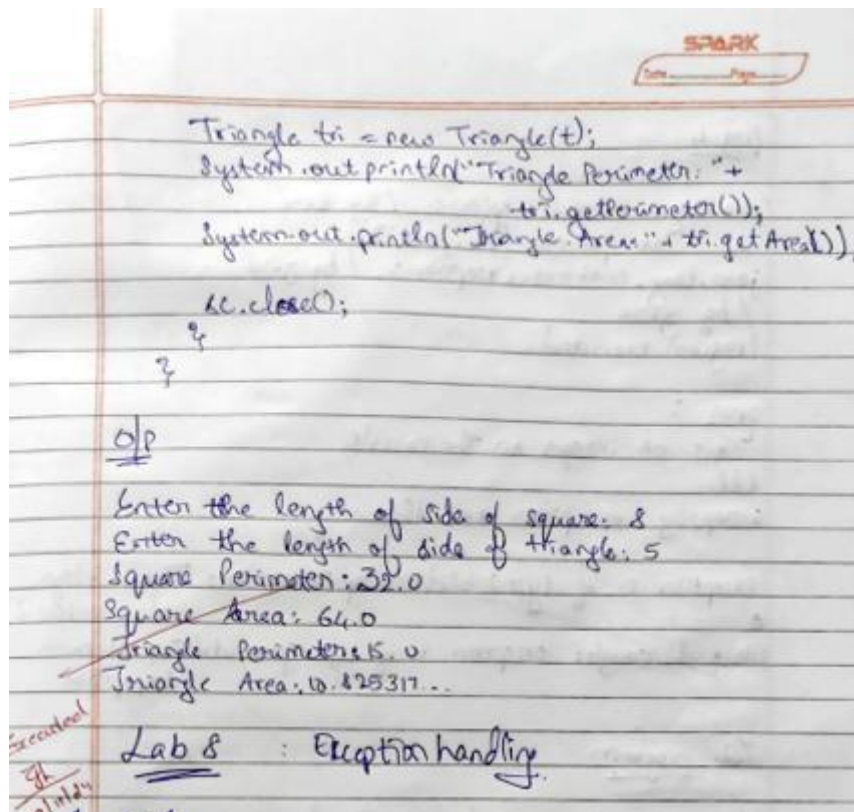 SPARK
Date Page
Triangle tri = new Triangle(t);
System.out.println("Triangle Perimeter: "+
tri.getPerimeter());
System.out.println("Triangle Area: "+ tri.getArea());
sc.close();
}
}
O/P
Enter the length of side of square: 8
Enter the length of side of triangle: 5
Square Perimeter: 32.0
Square Area: 64.0
Triangle Perimeter: 15.0
Triangle Area: 10.825317...
Executed
Lab 8 : Exception handling